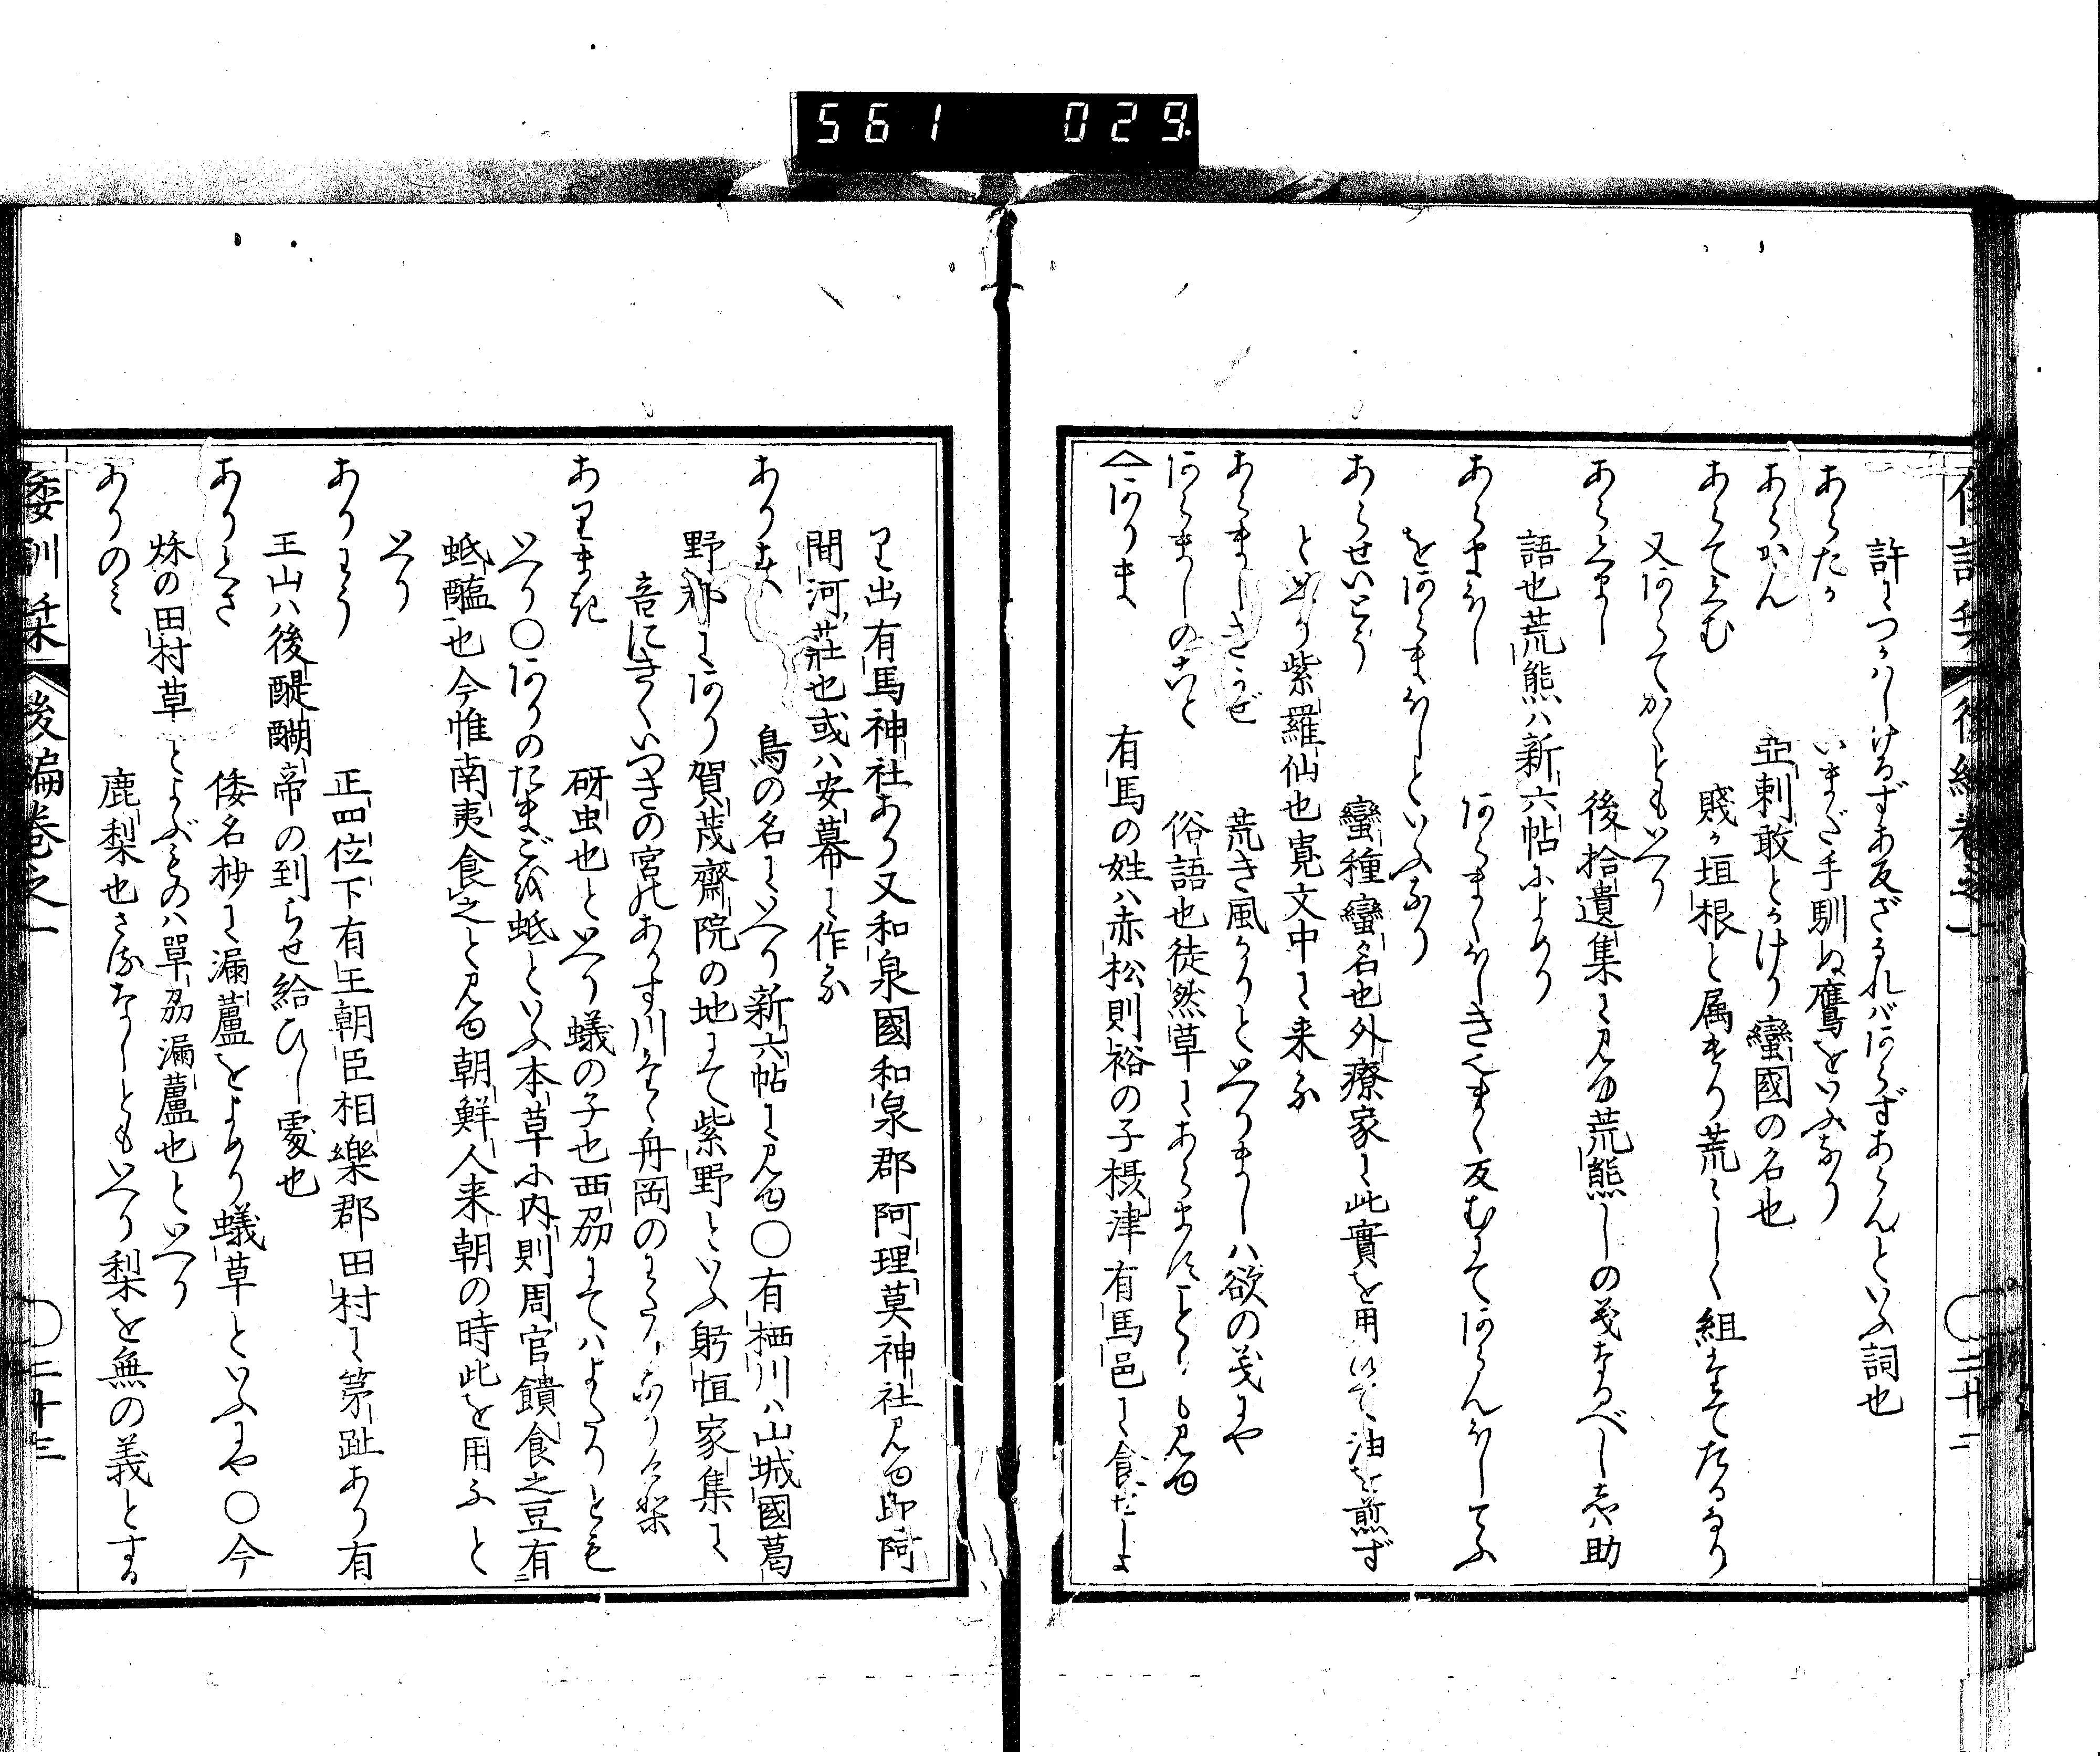 561 029
許につかはしけるずあ反ざなればあらずあらんといふ詞也
あらたか　いまだ手馴ぬ鷹をいふなり
あらかん　亞剌敢とかけり蠻國の名也
あらてくむ　賤か垣根と属せり荒々しく組たてたるなり
又あらてかくともいへり
あらくまし　後拾遺集に見ゆ荒熊しの義なるべし志ハ助
語也荒熊ハ新六帖によめり
あらまほし　あらまくほしき也まく反むにてあらんほしてふ
をあらまほしといふなり
あらせいとう　蠻種蠻名也外療家に此實を用ゐて油を煎ず
といへり紫羅仙也寛文中に来る
あらましきかぜ　荒き風なりといへりましハ欲の義にや
あらましのこと　俗語也徒然草にあらましことゝも見ゆ
△ありま　有馬の姓ハ赤松則裕の子摂津有馬邑に食だしよ
り出有馬神社あり又和泉國和泉郡阿理莫神社見ゆ即阿
間河莊也或ハ安幕に作る
ありす　鳥の名にいへり新六帖に見ゆ〇有栖川ハ山城國葛
野郡にあり賀茂齋院の地にて紫野といふ躬恒家集に
音にきくいつきの宮のありす川たゝ舟岡のわたりなりけり
ありまき　砑虫也といへり蟻の子也西刕にてハよたりとも
いへり〇ありのたまごを蚳といふ本草に内則周官饋食之豆有
蚳醢也今惟南夷食之と見ゆ朝鮮人来朝の時此を用ふと
いへり
ありわう　正四位下有王朝臣相樂郡田村に第趾あり有
王山ハ後醍醐帝の到らせ給ひし處也
ありくさ　倭名抄に漏蘆をよめり蟻草といふにや〇今
秌の田村草とよぶものハ單刕漏蘆也といへり
ありのミ　鹿梨也さるなしともいへり梨を無の義とする
倭訓栞　後編巻之一　〇二十三
後編巻之一　〇二十二